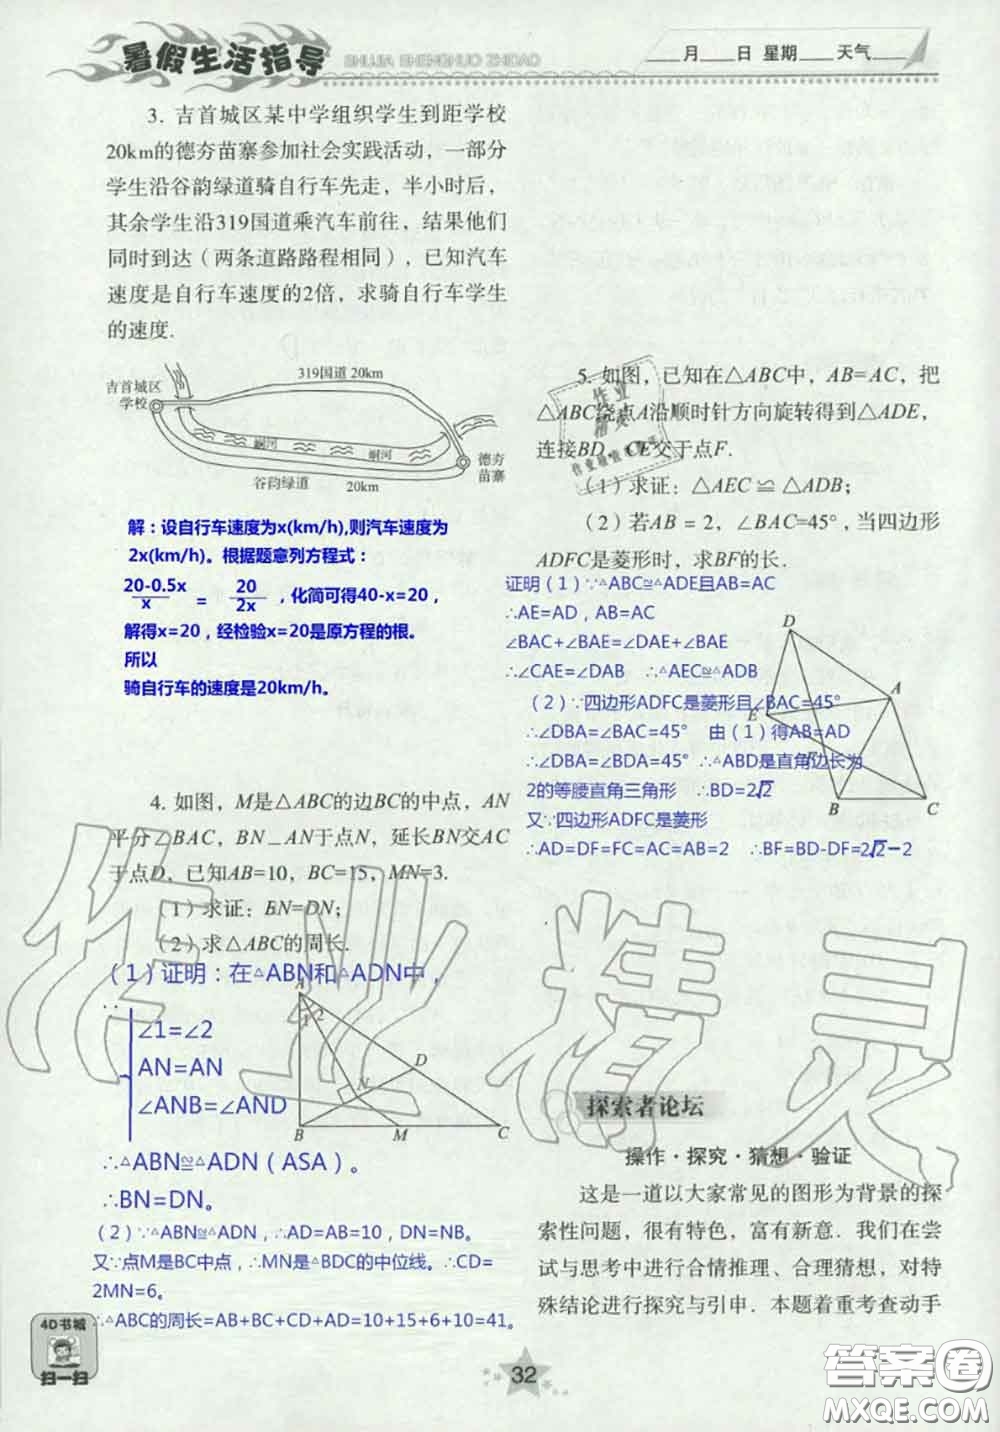 暑假生活指导
SHUJIA SHENGHUO ZHIDAO
___月___日 星期___天气___
3. 吉首城区某中学组织学生到距学校
20km的德夯苗寨参加社会实践活动，一部分
学生沿谷韵绿道骑自行车先走，半小时后，
其余学生沿319国道乘汽车前往，结果他们
同时到达（两条道路路程相同），已知汽车
速度是自行车速度的2倍，求骑自行车学生
的速度.
319国道 20km
吉首城区
学校
峒河
峒河
德夯
苗寨
谷韵绿道 20km
解：设自行车速度为x(km/h),则汽车速度为
2x(km/h)。根据题意列方程式：
20-0.5x/x = 20/2x ，化简可得40-x=20，
解得x=20，经检验x=20是原方程的根。
所以
骑自行车的速度是20km/h。
4. 如图，M是△ABC的边BC的中点，AN
平分∠BAC，BN⊥AN于点N，延长BN交AC
于点D，已知AB=10，BC=15，MN=3.
（1）求证：BN=DN；
（2）求△ABC的周长.
（1）证明：在△ABN和△ADN中，
∵
∠1=∠2
AN=AN
∠ANB=∠AND
A
1 2
D
N
B M C
∴△ABN≌△ADN（ASA）。
∴BN=DN。
（2）∵△ABN≌△ADN，∴AD=AB=10，DN=NB。
又∵点M是BC中点，∴MN是△BDC的中位线。∴CD=
2MN=6。
∴△ABC的周长=AB+BC+CD+AD=10+15+6+10=41。
5. 如图，已知在△ABC中，AB=AC，把
△ABC绕点A沿顺时针方向旋转得到△ADE，
连接BD，CE交于点F.
（1）求证：△AEC ≌ △ADB；
（2）若AB = 2，∠BAC=45°，当四边形
ADFC是菱形时，求BF的长.
证明（1）∵△ABC≌△ADE且AB=AC
∴AE=AD，AB=AC
∠BAC+∠BAE=∠DAE+∠BAE
∴∠CAE=∠DAB ∴△AEC≌△ADB
（2）∵四边形ADFC是菱形且∠BAC=45°
∴∠DBA=∠BAC=45° 由（1）得AB=AD
∴∠DBA=∠BDA=45° ∴△ABD是直角边长为
2的等腰直角三角形 ∴BD=2√2
又∵四边形ADFC是菱形
∴AD=DF=FC=AC=AB=2 ∴BF=BD-DF=2√2-2
D
A
E
F
B C
探索者论坛
操作·探究·猜想·验证
这是一道以大家常见的图形为背景的探
索性问题，很有特色，富有新意. 我们在尝
试与思考中进行合情推理、合理猜想，对特
殊结论进行探究与引申. 本题着重考查动手
4D书城
扫一扫
32
作业精灵
答案圈
MXQE.COM